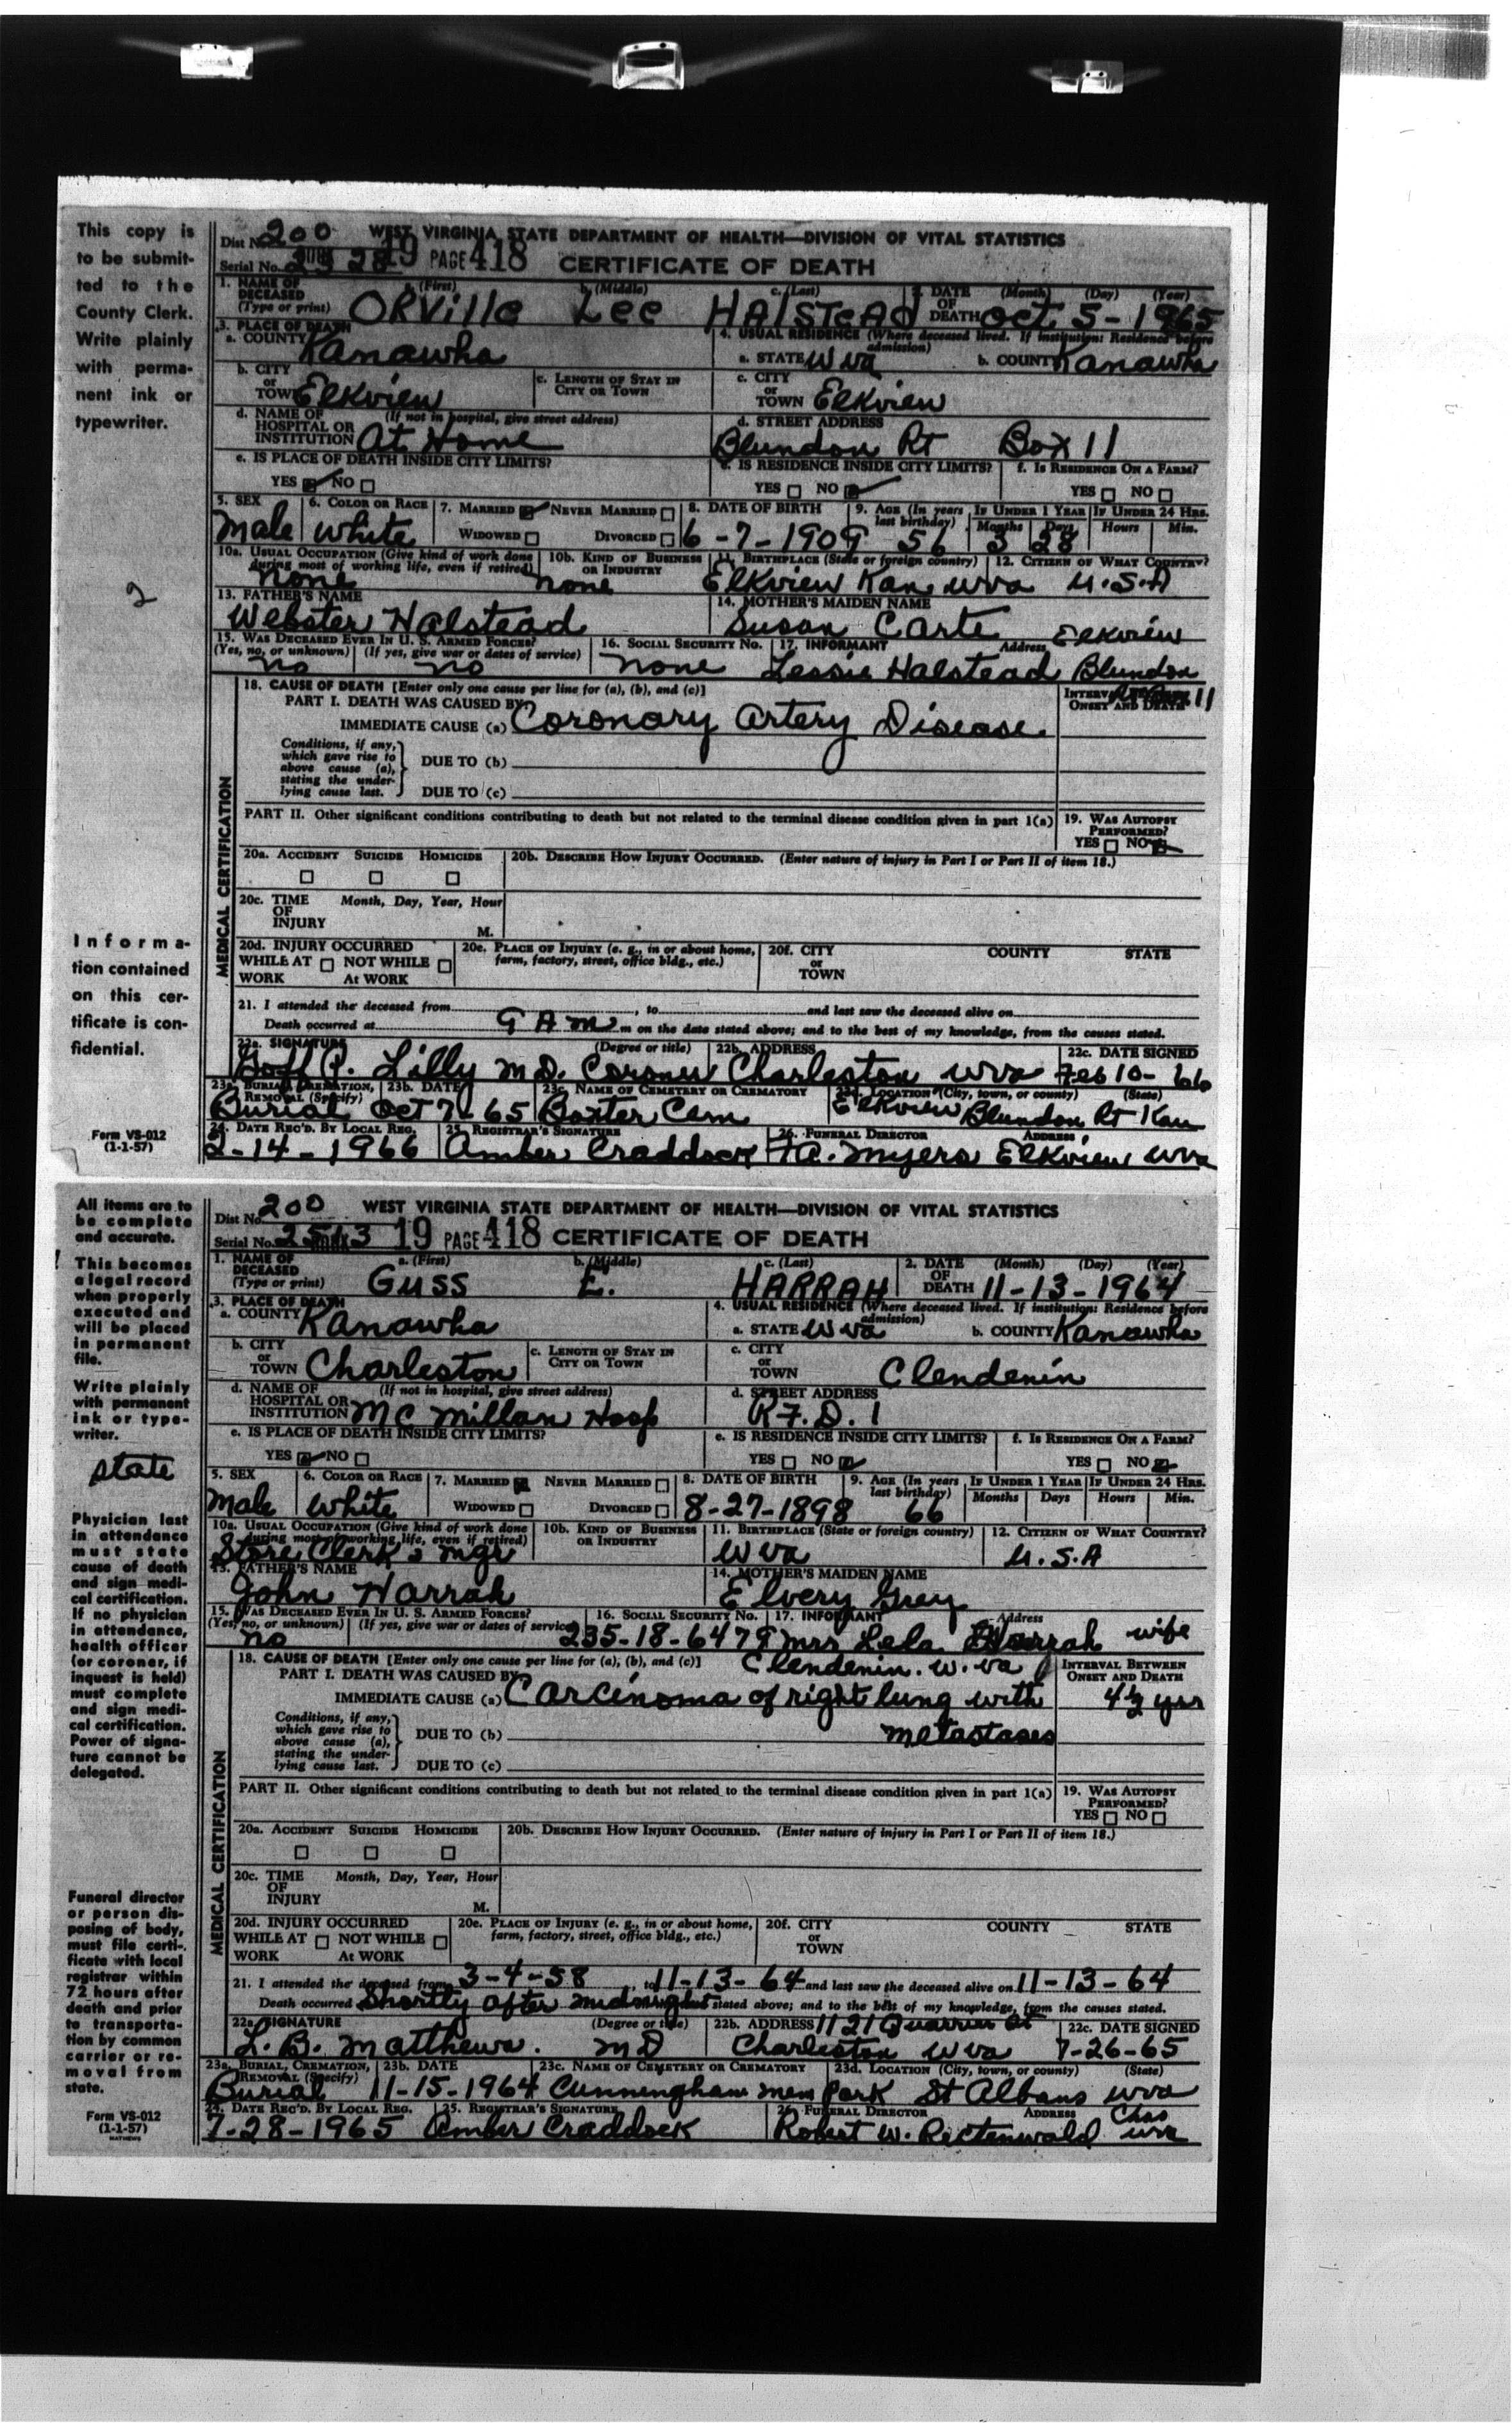 This copy is
to be submit-
ted to the
County Clerk.
Write plainly
with perma-
nent ink or
typewriter.
2
Informa-
tion contained
on this cer-
tificate is con-
fidential.
Form VS-012
(1-1-57)
Dist No. 200 WEST VIRGINIA STATE DEPARTMENT OF HEALTH—DIVISION OF VITAL STATISTICS
Serial No. 19 PAGE 418 CERTIFICATE OF DEATH
1. NAME OF DECEASED (Type or print) a. (First) b. (Middle) c. (Last) 2. DATE OF DEATH (Month) (Day) (Year)
ORville Lee HAlsteAd Oct. 5-1965
3. PLACE OF DEATH 4. USUAL RESIDENCE (Where deceased lived. If institution: Residence before admission)
a. COUNTY Kanawha a. STATE W va b. COUNTY Kanawha
b. CITY or TOWN Elkview c. LENGTH OF STAY IN CITY OR TOWN c. CITY or TOWN Elkview
d. NAME OF HOSPITAL OR INSTITUTION (If not in hospital, give street address) At Home d. STREET ADDRESS Blundon Rt Box 11
e. IS PLACE OF DEATH INSIDE CITY LIMITS? e. IS RESIDENCE INSIDE CITY LIMITS? f. IS RESIDENCE ON A FARM?
YES NO YES NO YES NO
5. SEX 6. COLOR OR RACE 7. MARRIED NEVER MARRIED 8. DATE OF BIRTH 9. AGE (In years last birthday) IF UNDER 1 YEAR IF UNDER 24 HRS.
Male White WIDOWED DIVORCED 6-7-1909 56 Months 3 Days 28 Hours Min.
10a. USUAL OCCUPATION (Give kind of work done during most of working life, even if retired) 10b. KIND OF BUSINESS OR INDUSTRY 11. BIRTHPLACE (State or foreign country) 12. CITIZEN OF WHAT COUNTRY?
none none Elkview Kan wva U.S.A
13. FATHER'S NAME 14. MOTHER'S MAIDEN NAME
Webster Halstead Susan Carte
15. WAS DECEASED EVER IN U. S. ARMED FORCES? 16. SOCIAL SECURITY NO. 17. INFORMANT Address Elkview
(Yes, no, or unknown) (If yes, give war or dates of service)
no no none Lessie Halstead Blundon
18. CAUSE OF DEATH [Enter only one cause per line for (a), (b), and (c)] INTERVAL BETWEEN ONSET AND DEATH 11
PART I. DEATH WAS CAUSED BY:
IMMEDIATE CAUSE (a) Coronary Artery Disease.
Conditions, if any, which gave rise to above cause (a), stating the underlying cause last.
DUE TO (b)
DUE TO (c)
PART II. Other significant conditions contributing to death but not related to the terminal disease condition given in part 1(a) 19. WAS AUTOPSY PERFORMED?
YES NO
20a. ACCIDENT SUICIDE HOMICIDE 20b. DESCRIBE HOW INJURY OCCURRED. (Enter nature of injury in Part I or Part II of item 18.)
20c. TIME OF INJURY Month, Day, Year, Hour M.
20d. INJURY OCCURRED 20e. PLACE OF INJURY (e. g., in or about home, farm, factory, street, office bldg., etc.) 20f. CITY or TOWN COUNTY STATE
WHILE AT WORK NOT WHILE At WORK
MEDICAL CERTIFICATION
21. I attended the deceased from , to and last saw the deceased alive on
Death occurred at 9 Am m on the date stated above; and to the best of my knowledge, from the causes stated.
22a. SIGNATURE (Degree or title) 22b. ADDRESS 22c. DATE SIGNED
P. Lilly M.D. Coroner Charleston wva Feb 10-66
23a. BURIAL, CREMATION, REMOVAL (Specify) 23b. DATE 23c. NAME OF CEMETERY OR CREMATORY 23d. LOCATION (City, town, or county) (State)
Burial Oct 7-65 Baxter Cem Elkview Blundon Rt Kan
24. DATE REC'D. BY LOCAL REG. 25. REGISTRAR'S SIGNATURE 26. FUNERAL DIRECTOR ADDRESS
2-14-1966 Amber Craddock A. Myers Elkview wva
All items are to
be complete
and accurate.
This becomes
a legal record
when properly
executed and
will be placed
in permanent
file.
Write plainly
with permanent
ink or type-
writer.
state
Physician last
in attendance
must state
cause of death
and sign medi-
cal certification.
If no physician
in attendance,
health officer
(or coroner, if
inquest is held)
must complete
and sign medi-
cal certification.
Power of signa-
ture cannot be
delegated.
Funeral director
or person dis-
posing of body,
must file certi-
ficate with local
registrar within
72 hours after
death and prior
to transporta-
tion by common
carrier or re-
moval from
state.
Form VS-012
(1-1-57)
MATHEWS
Dist No. 200 WEST VIRGINIA STATE DEPARTMENT OF HEALTH—DIVISION OF VITAL STATISTICS
Serial No. 2513 19 PAGE 418 CERTIFICATE OF DEATH
1. NAME OF DECEASED (Type or print) a. (First) b. (Middle) c. (Last) 2. DATE OF DEATH (Month) (Day) (Year)
GUSS E. HARRAH 11-13-1964
3. PLACE OF DEATH 4. USUAL RESIDENCE (Where deceased lived. If institution: Residence before admission)
a. COUNTY Kanawha a. STATE W va b. COUNTY Kanawha
b. CITY or TOWN Charleston c. LENGTH OF STAY IN CITY OR TOWN c. CITY or TOWN Clendenin
d. NAME OF HOSPITAL OR INSTITUTION (If not in hospital, give street address) Mc Millan Hosp d. STREET ADDRESS R.F.D. 1
e. IS PLACE OF DEATH INSIDE CITY LIMITS? e. IS RESIDENCE INSIDE CITY LIMITS? f. IS RESIDENCE ON A FARM?
YES NO YES NO YES NO
5. SEX 6. COLOR OR RACE 7. MARRIED NEVER MARRIED 8. DATE OF BIRTH 9. AGE (In years last birthday) IF UNDER 1 YEAR IF UNDER 24 HRS.
Male White WIDOWED DIVORCED 8-27-1898 66 Months Days Hours Min.
10a. USUAL OCCUPATION (Give kind of work done during most of working life, even if retired) 10b. KIND OF BUSINESS OR INDUSTRY 11. BIRTHPLACE (State or foreign country) 12. CITIZEN OF WHAT COUNTRY?
Store Clerk & mgr W va U.S.A
13. FATHER'S NAME 14. MOTHER'S MAIDEN NAME
John Harrah Elvery Grey
15. WAS DECEASED EVER IN U. S. ARMED FORCES? 16. SOCIAL SECURITY NO. 17. INFORMANT Address
(Yes, no, or unknown) (If yes, give war or dates of service)
no 235-18-6479 Mrs Lela Harrah wife
18. CAUSE OF DEATH [Enter only one cause per line for (a), (b), and (c)] Clendenin. W. va INTERVAL BETWEEN ONSET AND DEATH
PART I. DEATH WAS CAUSED BY:
IMMEDIATE CAUSE (a) Carcinoma of right lung with 4½ yrs
Conditions, if any, which gave rise to above cause (a), stating the underlying cause last.
DUE TO (b) metastases
DUE TO (c)
PART II. Other significant conditions contributing to death but not related to the terminal disease condition given in part 1(a) 19. WAS AUTOPSY PERFORMED?
YES NO
20a. ACCIDENT SUICIDE HOMICIDE 20b. DESCRIBE HOW INJURY OCCURRED. (Enter nature of injury in Part I or Part II of item 18.)
20c. TIME OF INJURY Month, Day, Year, Hour M.
20d. INJURY OCCURRED 20e. PLACE OF INJURY (e. g., in or about home, farm, factory, street, office bldg., etc.) 20f. CITY or TOWN COUNTY STATE
WHILE AT WORK NOT WHILE At WORK
MEDICAL CERTIFICATION
21. I attended the deceased from 3-4-58, to 11-13-64 and last saw the deceased alive on 11-13-64
Death occurred Shortly after midnight stated above; and to the best of my knowledge, from the causes stated.
22a. SIGNATURE (Degree or title) 22b. ADDRESS 1121 Quarrier St 22c. DATE SIGNED
L. B. Matthews. MD Charleston W va 7-26-65
23a. BURIAL, CREMATION, REMOVAL (Specify) 23b. DATE 23c. NAME OF CEMETERY OR CREMATORY 23d. LOCATION (City, town, or county) (State)
Burial 11-15-1964 Cunningham Mem Park St Albans wva
24. DATE REC'D. BY LOCAL REG. 25. REGISTRAR'S SIGNATURE 26. FUNERAL DIRECTOR ADDRESS Chas
7-28-1965 Amber Craddock Robert W. Rictenwald wva